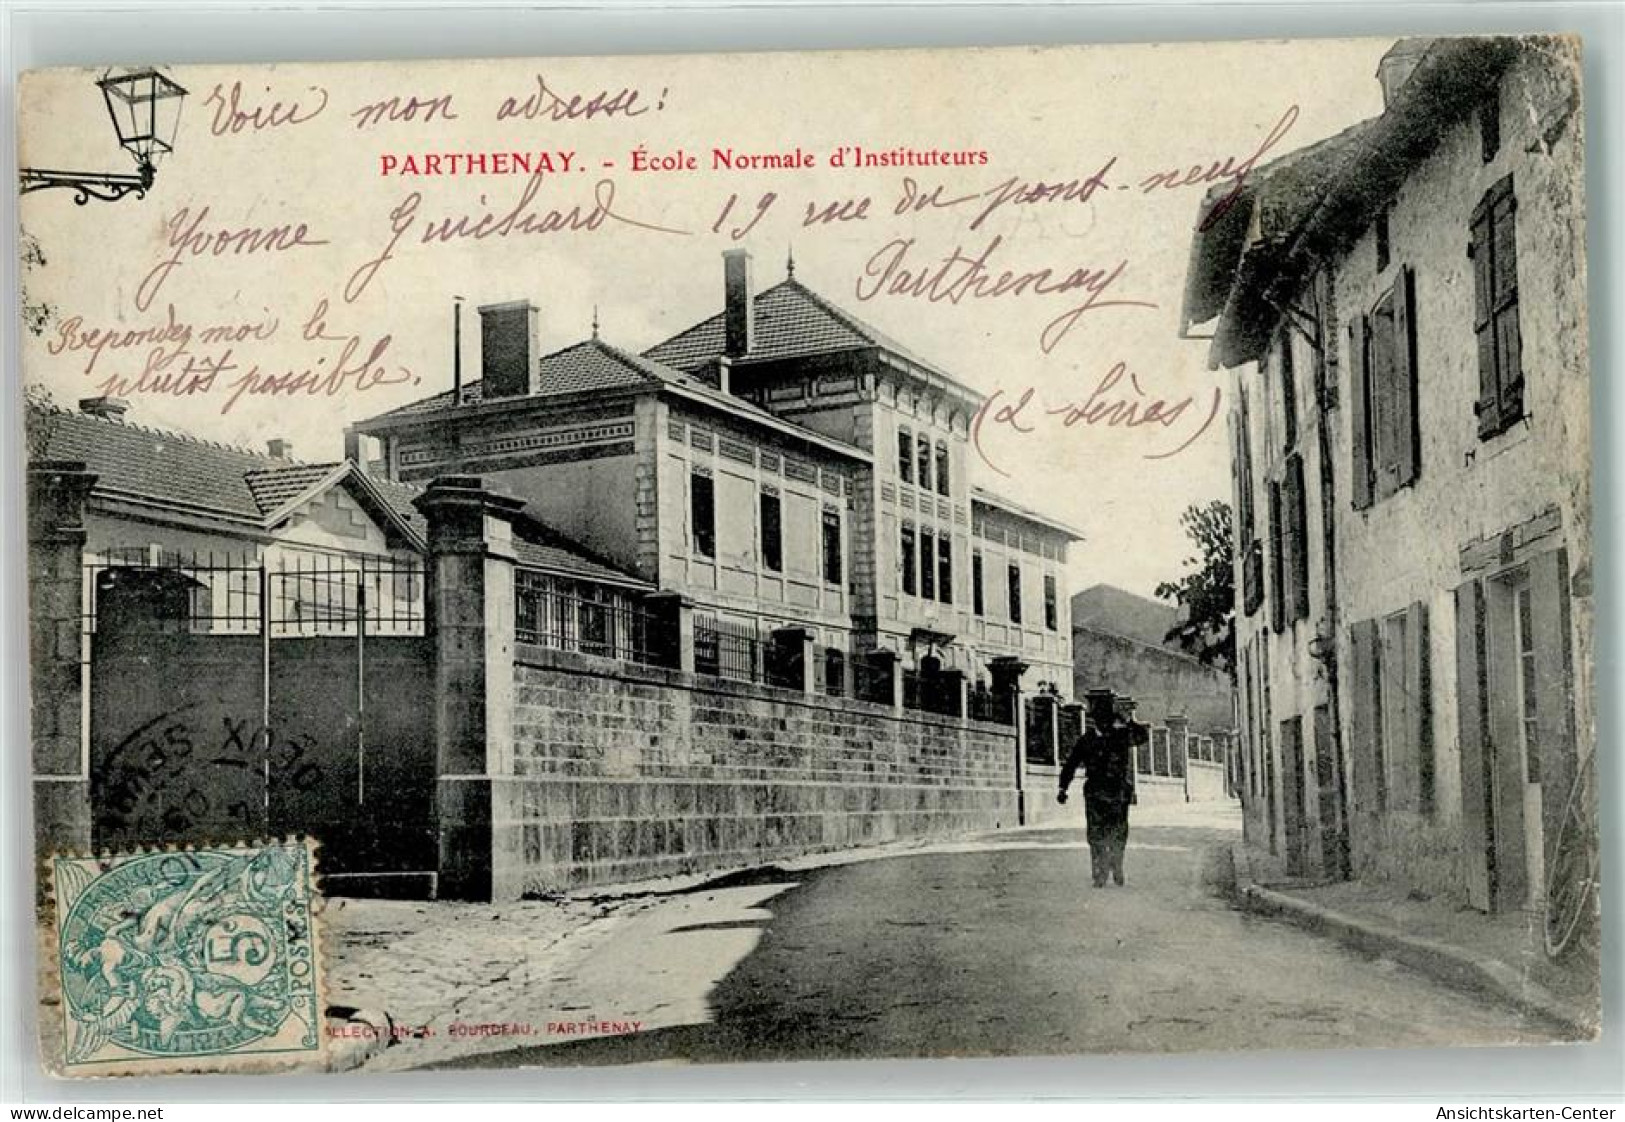 Voici mon adresse:
PARTHENAY. - École Normale d'Instituteurs
Yvonne Guichard 19 rue du pont-neuf
Parthenay
(2 Sèvres)
Repondez moi le
plutôt possible.
DEUX SEVRES
5c
POSTES
COLLECTION A. BOURDEAU, PARTHENAY
www.delcampe.net
Ansichtskarten-Center